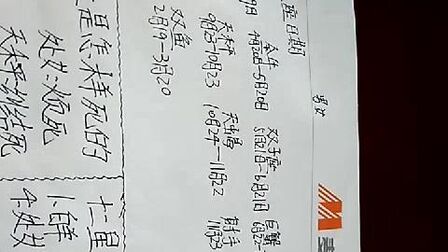 座日期
男女
金牛 双子座 巨蟹
4月20日-5月20日 5月21日-6月21日 6月22
天秤 天蝎 射手
9月23-10月23 10月24-11月22
双鱼
2月19-3月20
是怎样死的
处女:烦死
天秤:纠结死